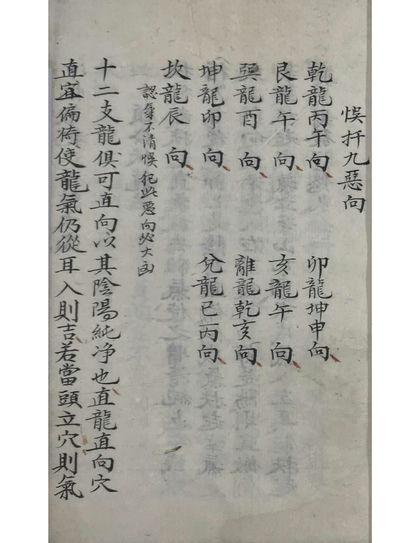 悮扦九惡向
乾龍丙午向 卯龍坤申向
艮龍午向 亥龍午向
巽龍酉向 離龍乾亥向
坤龍卯向 兌龍巳丙向
坎龍辰向
認氣不清悮犯此惡向必大凶
十二支龍俱可直向以其陰陽純净也直龍直向穴
直宜偏倚使龍氣仍從耳入則吉若當頭立穴則氣